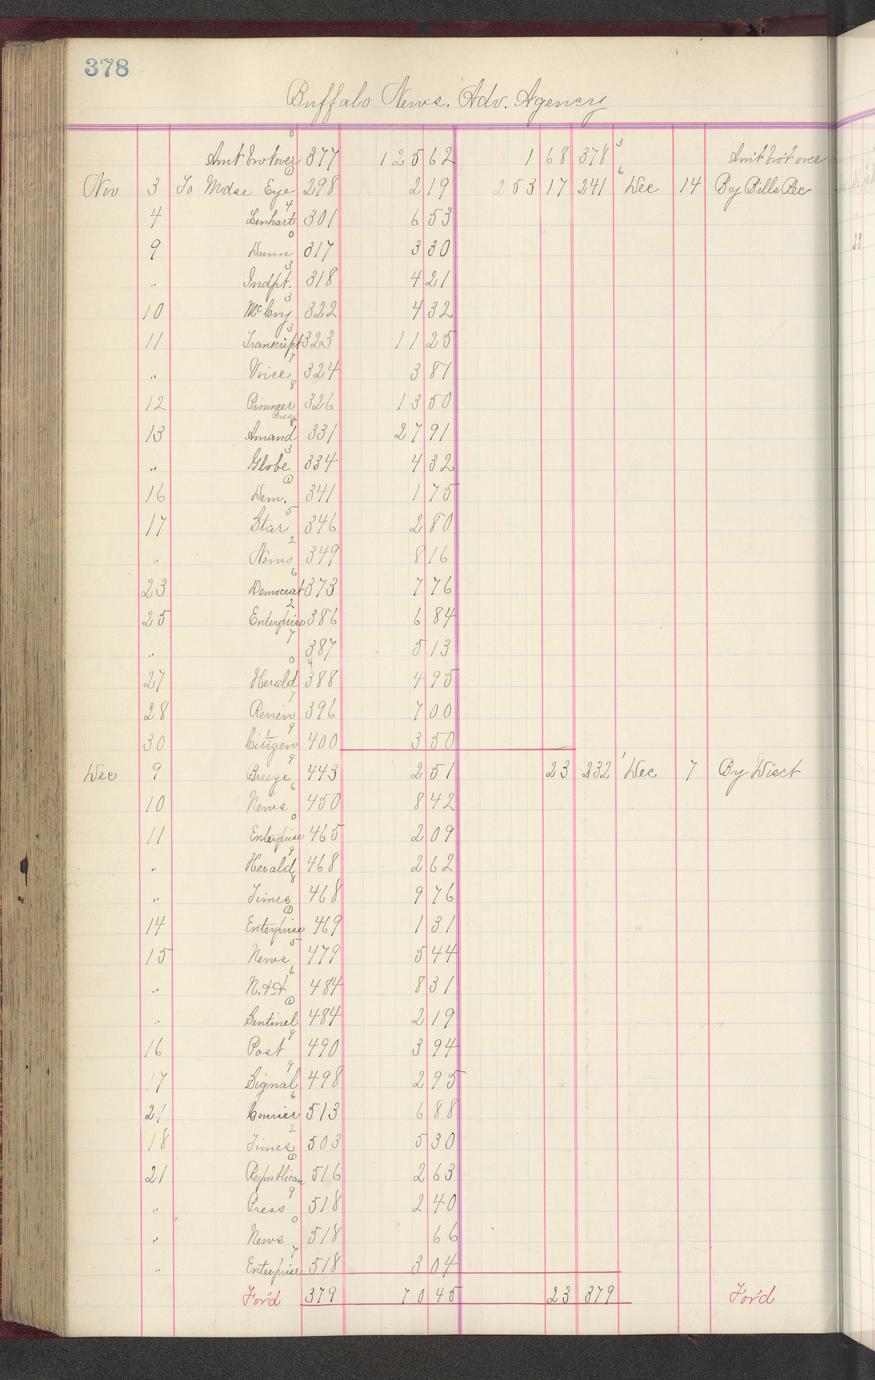 378
Buffalo News. Adv. Agency
0 3
Amt Brot over 377 125 62 1 68 378 Amt brot over
Nov 3 To Mdse Eye 298 2 19 253 17 241 6 Dec 14 By Bills Rec
4 4 Lenhart 301 6 53
9 0 Dunn 317 3 30
" 3 Indpt. 318 4 21
10 3 McEvoy 322 4 32
11 3 Transcript 323 11 25
" 7 Voice 324 3 87
12 8 Pioneer Press 326 13 50
13 8 Amand 331 27 91
" 3 Globe 334 4 32
16 Dem. 341 1 75
17 5 Star 346 2 80
" 2 News 349 8 16
23 6 Democrat 373 7 76
25 2 Enterprise 386 6 84
" 7 387 5 13
27 0 Herald 388 4 95
28 7 Review 396 7 00
30 9 Citizen 400 3 50
Dec 9 9 Breeze 443 2 51 23 232 1 Dec 7 By Disct
10 6 News 450 8 42
11 0 Enterprise 465 2 09
" 9 Herald 468 2 62
" 8 Times 468 9 76
14 Enterprise 469 1 31
15 5 News 479 5 44
" 6 N.&A 484 8 31
" Sentinel 484 2 19
16 9 Post 490 3 94
17 9 Signal 498 2 95
21 6 Courier 513 6 88
18 2 Times 503 5 30
21 Republican 516 2 63
" 9 Press 518 2 40
" 0 News 518 66
" 7 Enterprise 518 3 04
For'd 379 70 45 23 379 For'd